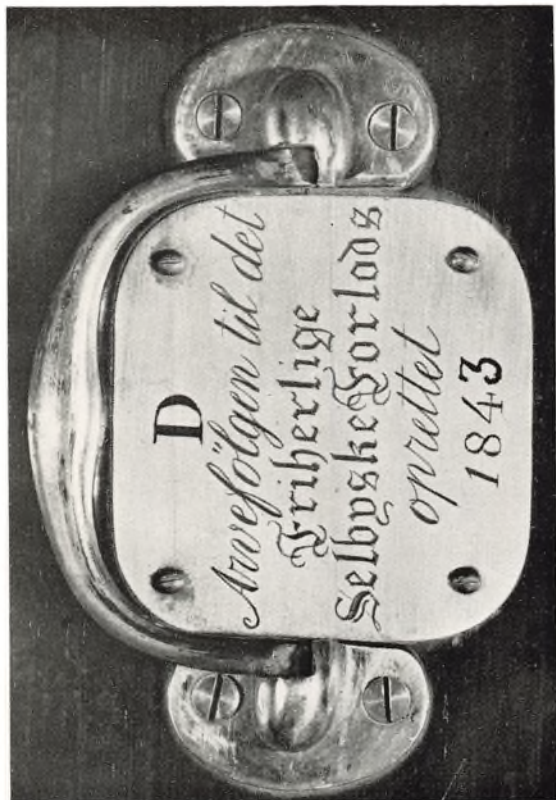 D
Arvefölgen til det
Friherlige
Selbyske Forlods
oprettet
1843